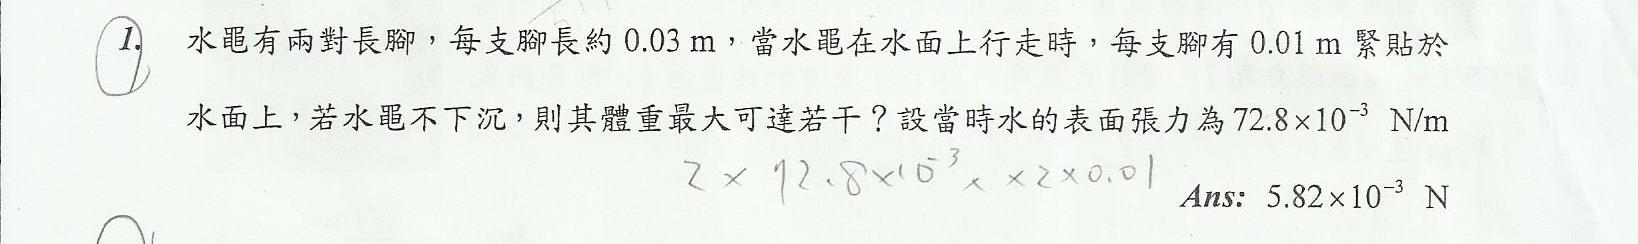 1. 水黽有兩對長腳，每支腳長約 0.03 m，當水黽在水面上行走時，每支腳有 0.01 m 緊貼於
水面上，若水黽不下沉，則其體重最大可達若干？設當時水的表面張力為 72.8×10⁻³ N/m
2 × 72.8×10⁻³ × ×2×0.01
Ans: 5.82×10⁻³ N